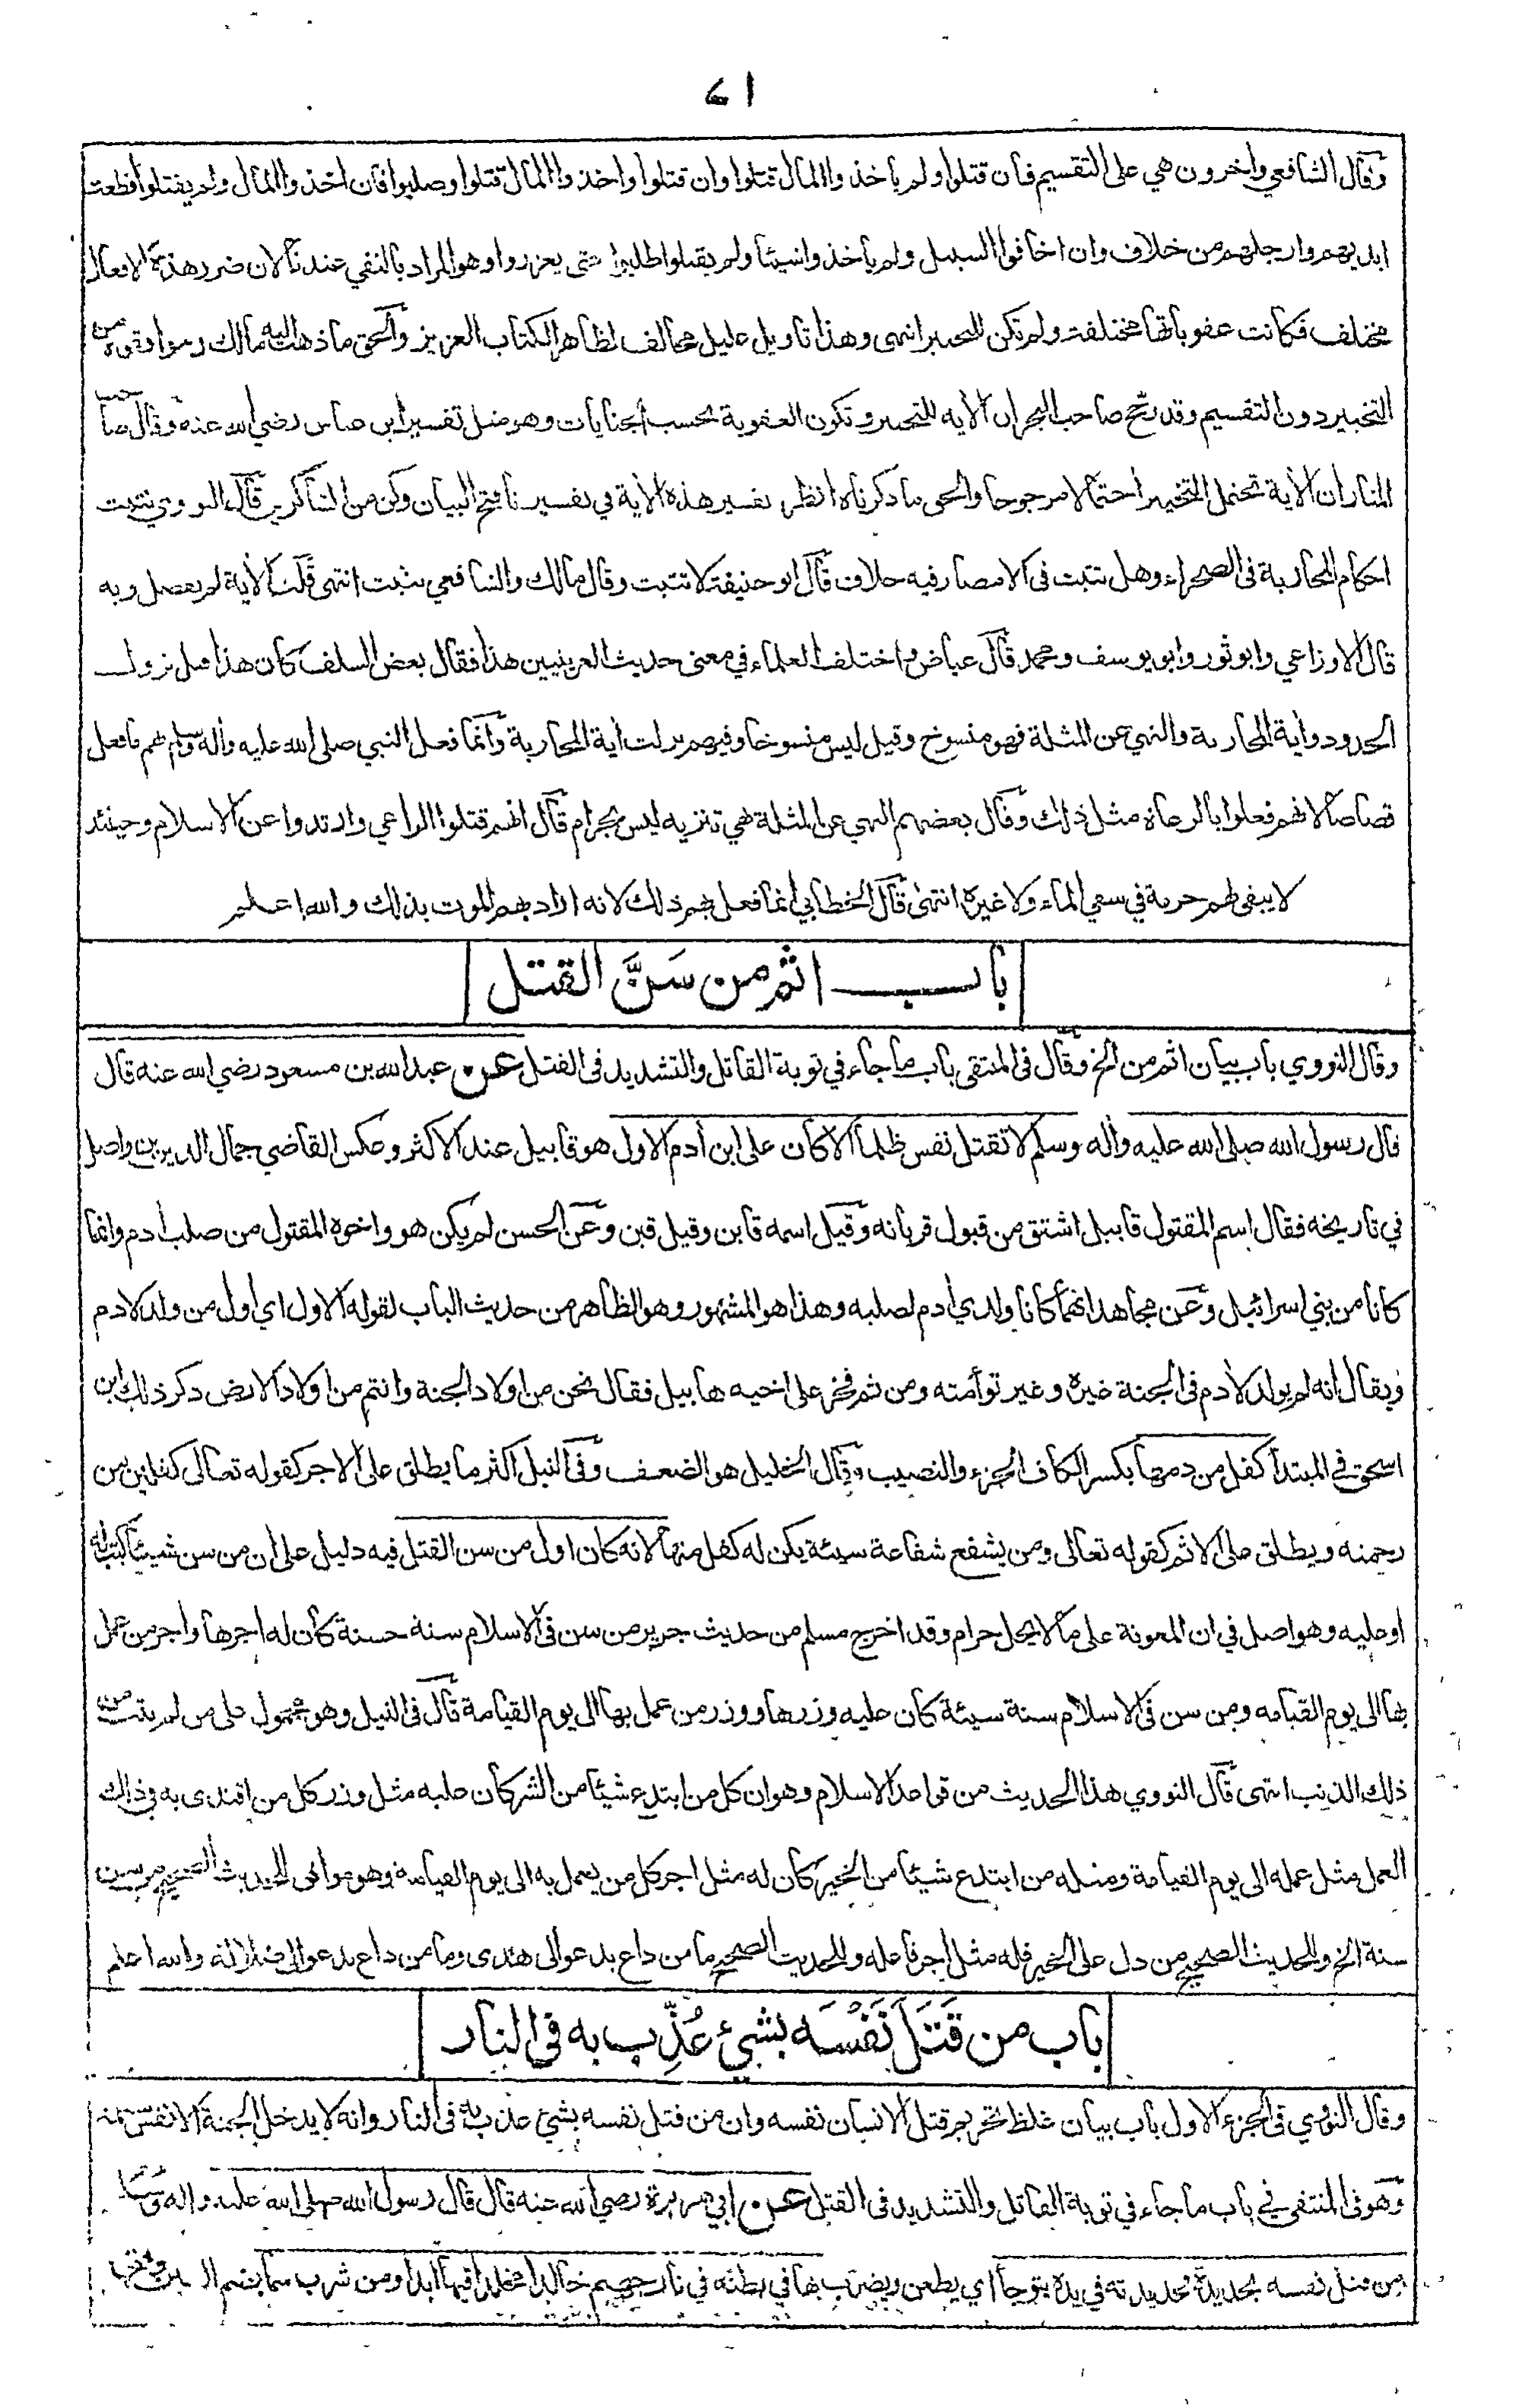 ٤١
وقال الشافعي واخرون هي على التقسيم فان قتلوا ولم ياخذ واالمال قتلوا وان قتلوا واخذ واالمال قتلوا وصلبوا فان اخذ واالمال ولم يقتلوا قطعت
ايديهم وارجلهم من خلاف وان اخافوا السبيل ولم ياخذ واشيئا ولم يقتلوا طلبوا حتى يعزروا وهو المراد بالنفي عندنا لان ضرر هذه الافعال
مختلف فكانت عقوباتها مختلفة ولم تكن للتخيير انتهى وهذا تاويل عليل مخالف لظاهر الكتاب العزيز والحق ما ذهب اليه مالك رح وموافقوه من
التخيير دون التقسيم وقد رجح صاحب البحر ان الاية للتخيير وتكون العقوبة بحسب الجنايات وهو مثل تفسير ابن عباس رضي الله عنه وقال صاحب
المنار ان الاية تحتمل التخيير احتمالا مرجوحا والحق ما ذكرناه انظر تفسير هذه الاية في تفسيرنا فتح البيان وكن من الشاكرين قال النووي تثبت
احكام المحاربة فى الصحراء وهل تثبت فى الامصار فيه خلاف قال ابو حنيفة لا تثبت وقال مالك والشافعي تثبت انتهى قلت الاية لم تفصل وبه
قال الاوزاعي وابو ثور وابو يوسف ومحمد قال عياض رح اختلف العلماء في معنى حديث العرنيين هذا فقال بعض السلف كان هذا قبل نزول
الحدود واية المحاربة والنهي عن المثلة فهو منسوخ وقيل ليس منسوخا وفيهم نزلت اية المحاربة وانما فعل النبي صلى الله عليه واله وسلم بهم ما فعل
قصاصا لانهم فعلوا بالرعاة مثل ذلك وقال بعضهم النهي عن المثلة نهي تنزيه ليس بحرام قال انهم قتلوا الراعي وارتدوا عن الاسلام وحينئذ
لا يبقى لهم حرمة في سقي الماء ولا غيره انتهى قال الخطابي انما فعل بهم ذلك لانه اراد بهم الموت بذلك والله اعلم
باب اثم من سَنَّ القتل
وقال النووي باب بيان اثم من الخ وقال فى المنتقى باب ما جاء في توبة القاتل والتشديد فى القتل عن عبد الله بن مسعود رضي الله عنه قال
قال رسول الله صلى الله عليه واله وسلم لا تقتل نفس ظلما الا كان على ابن ادم الاول هو قابيل عند الاكثر وعكس القاضي جمال الدين بن واصل
في تاريخه فقال اسم المقتول قابيل اشتق من قبول قربانه وقيل اسمه قابن وقيل قبن وعن الحسن لم يكن هو واخوه المقتول من صلب ادم وانما
كانا من بني اسرائيل وعن مجاهد انهما كانا ولدي ادم لصلبه وهذا هو المشهور وهو الظاهر من حديث الباب لقوله الاول اي اول من ولد لادم
ويقال انه لم يولد لادم فى الجنة غيره وغير توأمته ومن ثم فخر على اخيه هابيل فقال نحن من اولاد الجنة وانتم من اولاد الارض ذكر ذلك ابن
اسحق في المبتدأ كفل من دمها بكسر الكاف الجزء والنصيب وقال الخليل هو الضعف وفي النيل اكثر ما يطلق على الاجر كقوله تعالى كفلين من
رحمته ويطلق على الاثم كقوله تعالى ومن يشفع شفاعة سيئة يكن له كفل منها لانه كان اول من سن القتل فيه دليل على ان من سن شيئا كتب له
او عليه وهو اصل في ان المعونة على ما لا يحل حرام وقد اخرج مسلم من حديث جرير من سن فى الاسلام سنة حسنة كان له اجرها واجر من عمل
بها الى يوم القيامه ومن سن فى الاسلام سنة سيئة كان عليه وزرها ووزر من عمل بها الى يوم القيامة قال فى النيل وهو محمول على من لم يتب من
ذلك الذنب انتهى قال النووي هذا الحديث من قواعد الاسلام وهو ان كل من ابتدع شيئا من الشر كان عليه مثل وزر كل من اقتدى به في ذلك
العمل مثل عمله الى يوم القيامة ومثله من ابتدع شيئا من الخير كان له مثل اجر كل من يعمل به الى يوم القيامة وهو موافق للحديث الصحيح من سن
سنة الخ وللحديث الصحيح من دل على الخير فله مثل اجر فاعله وللحديث الصحيح ما من داع يدعو الى هدى وما من داع يدعو الى ضلالة والله اعلم
باب من قَتَلَ نَفْسَه بشيئ عُذِّب به فى النار
وقال النووي فى الجزء الاول باب بيان غلظ تحريم قتل الانسان نفسه وان من قتل نفسه بشئ عذب به فى النار وانه لا يدخل الجنة الا نفس مسلمة
وهو فى المنتقى في باب ما جاء في توبة القاتل والتشديد فى القتل عن ابي هريرة رضي الله عنه قال قال رسول الله صلى الله عليه واله وسلم
من قتل نفسه بحديدة فحديدته في يده يتوجأ اي يطعن ويضرب بها في بطنه في نار جهنم خالدا مخلدا فيها ابدا ومن شرب سما بضم السين وفتحها